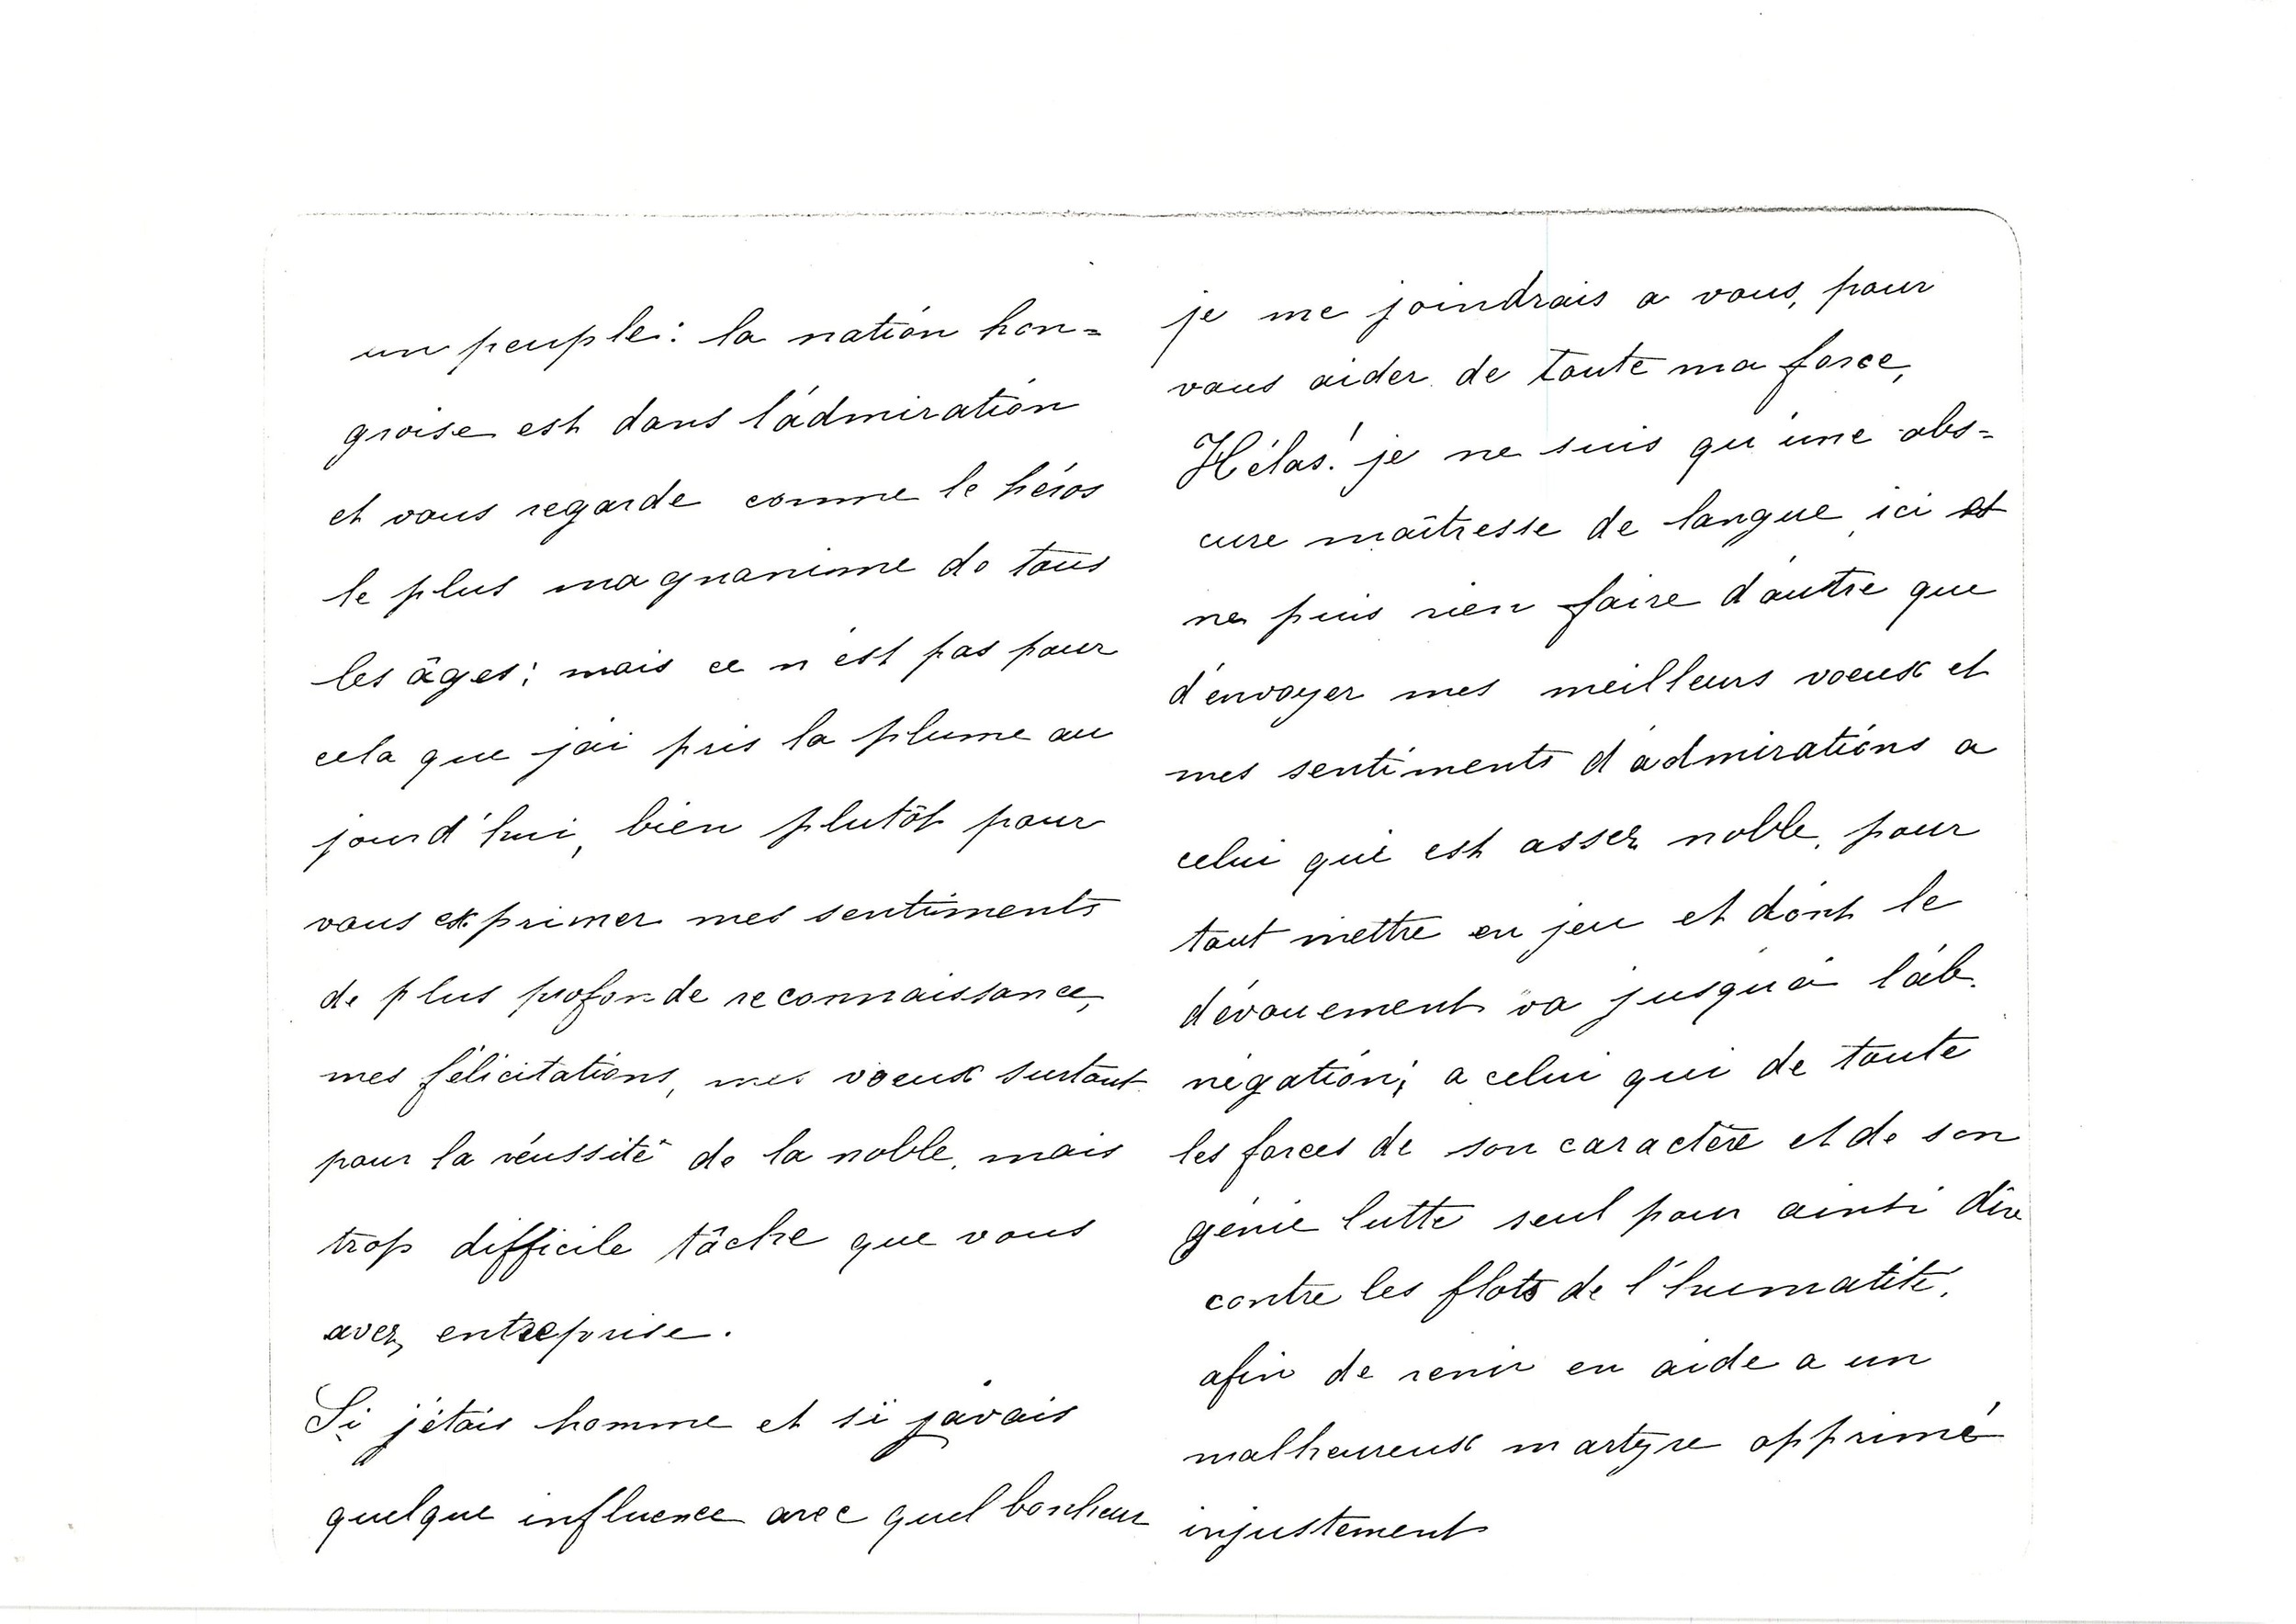 un peuple: la nation hon=
groise est dans l'admiration
et vous regarde comme le héros
le plus magnanime de tous
les âges; mais ce n'est pas pour
cela que j'ai pris la plume au
jourd'hui, bien plutôt pour
vous exprimer mes sentiments
de plus profonde reconnaissance,
mes félicitations, mes voeux surtout
pour la réussité de la noble, mais
trop difficile tâche que vous
avez entreprise.
Si j'étais homme et si j'avais
quelque influence avec quel bonheur
je me joindrais a vous, pour
vous aider de toute ma force,
Hélas! je ne suis qu'une obs=
cure maîtresse de langue, ici et
ne puis rien faire d'autre que
d'envoyer mes meilleurs voeux et
mes sentiments d'admirations a
celui qui est assez noble, pour
tout mettre en jeu et dont le
dévouement va jusqu'à l'ab.
négation; a celui qui de toute
les forces de son caractère et de son
génie lutte seul pour ainsi dire
contre les flots de l'humatité,
afin de venir en aide a un
malheureux martyre opprimé
injustement